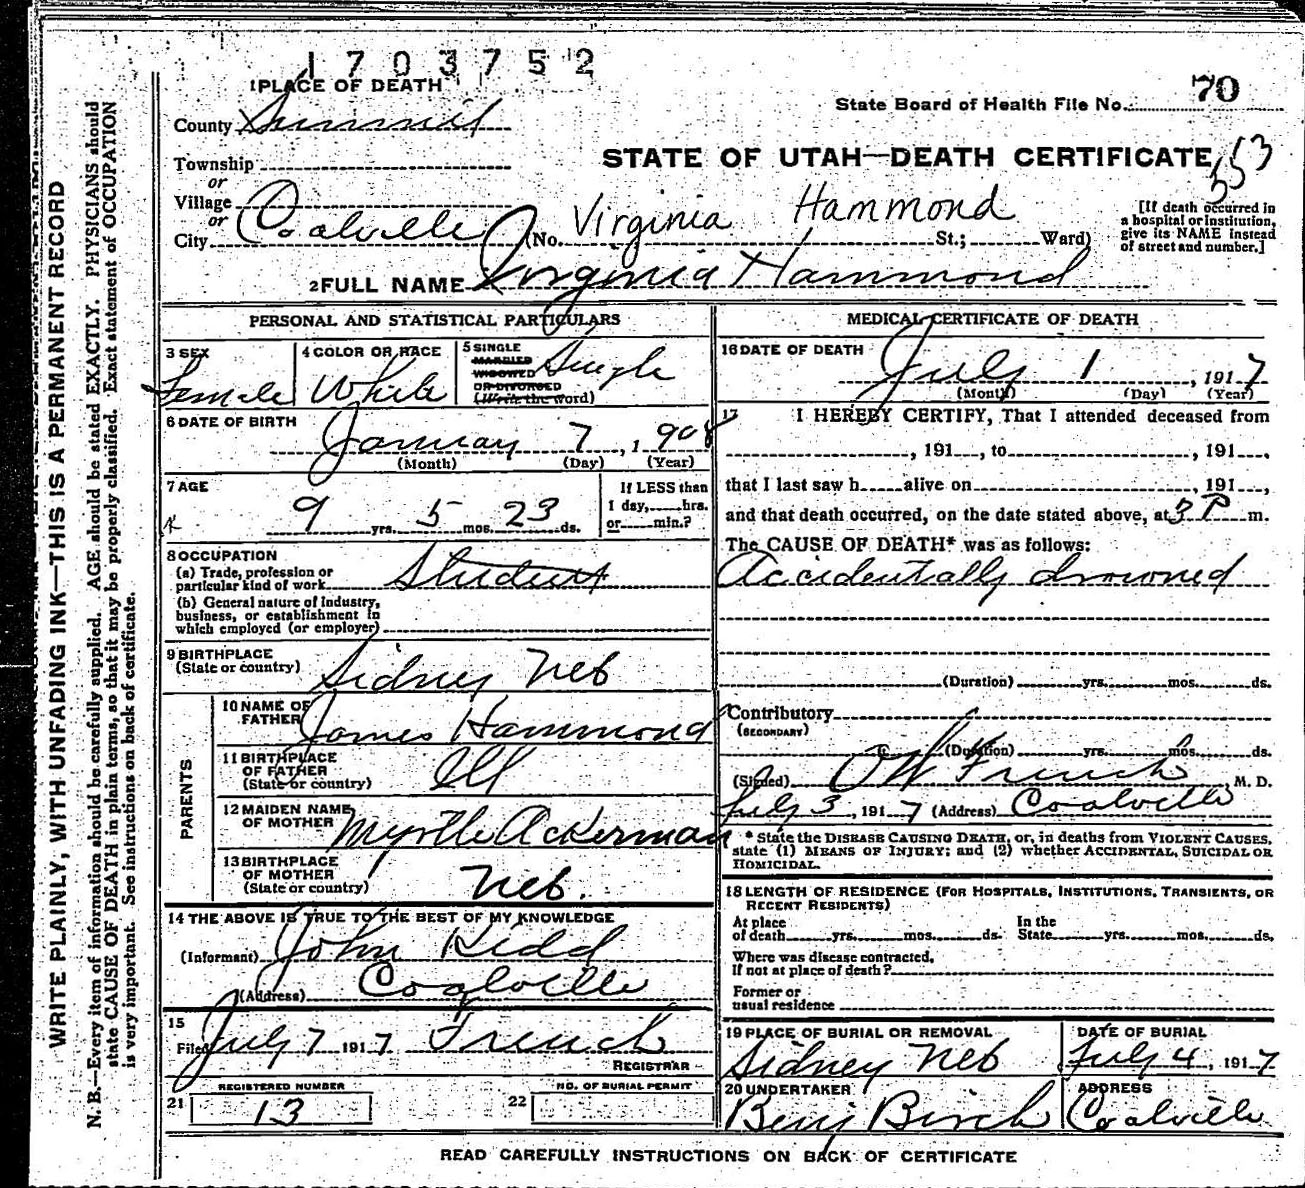 1703752
1 PLACE OF DEATH
State Board of Health File No. 70
County Summit
353
Township
STATE OF UTAH—DEATH CERTIFICATE
or
Village
or
City Coalville (No. Virginia Hammond St.; Ward)
[If death occurred in
a hospital or institution,
give its NAME instead
of street and number.]
2 FULL NAME Virginia Hammond
PERSONAL AND STATISTICAL PARTICULARS
3 SEX
Female
4 COLOR OR RACE
White
5 SINGLE
MARRIED
WIDOWED
OR DIVORCED
(Write the word)
Single
6 DATE OF BIRTH
January 7, 1908
(Month) (Day) (Year)
7 AGE
9 yrs. 5 mos. 23 ds.
If LESS than
1 day, hrs.
or min.?
8 OCCUPATION
(a) Trade, profession or
particular kind of work Student
(b) General nature of industry,
business, or establishment in
which employed (or employer)
9 BIRTHPLACE
(State or country) Sidney Neb
PARENTS
10 NAME OF
FATHER James Hammond
11 BIRTHPLACE
OF FATHER
(State or country) Ill
12 MAIDEN NAME
OF MOTHER Myrtle Ackerman
13 BIRTHPLACE
OF MOTHER
(State or country) Neb.
14 THE ABOVE IS TRUE TO THE BEST OF MY KNOWLEDGE
(Informant) John Kidd
(Address) Coalville
15
Filed July 7 1917 French
REGISTRAR
REGISTERED NUMBER
21 13
NO. OF BURIAL PERMIT
22
MEDICAL CERTIFICATE OF DEATH
16 DATE OF DEATH
July 1, 1917
(Month) (Day) (Year)
17 I HEREBY CERTIFY, That I attended deceased from
, 191 , to , 191 ,
that I last saw h alive on , 191 ,
and that death occurred, on the date stated above, at 3 P m.
The CAUSE OF DEATH* was as follows:
Accidentally drowned
(Duration) yrs. mos. ds.
Contributory
(SECONDARY)
(Duration) yrs. mos. ds.
(Signed) French M. D.
July 3, 1917 (Address) Coalville
* State the DISEASE CAUSING DEATH, or, in deaths from VIOLENT CAUSES,
state (1) MEANS OF INJURY; and (2) whether ACCIDENTAL, SUICIDAL OR
HOMICIDAL.
18 LENGTH OF RESIDENCE (FOR HOSPITALS, INSTITUTIONS, TRANSIENTS, OR
RECENT RESIDENTS)
At place
of death yrs. mos. ds.
In the
State yrs. mos. ds.
Where was disease contracted,
If not at place of death?
Former or
usual residence
19 PLACE OF BURIAL OR REMOVAL
Sidney Neb
DATE OF BURIAL
July 4, 1917
20 UNDERTAKER
Benj Birch
ADDRESS
Coalville
READ CAREFULLY INSTRUCTIONS ON BACK OF CERTIFICATE
WRITE PLAINLY, WITH UNFADING INK—THIS IS A PERMANENT RECORD
N. B.—Every item of information should be carefully supplied. AGE should be stated EXACTLY. PHYSICIANS should
state CAUSE OF DEATH in plain terms, so that it may be properly classified. Exact statement of OCCUPATION
is very important. See instructions on back of certificate.